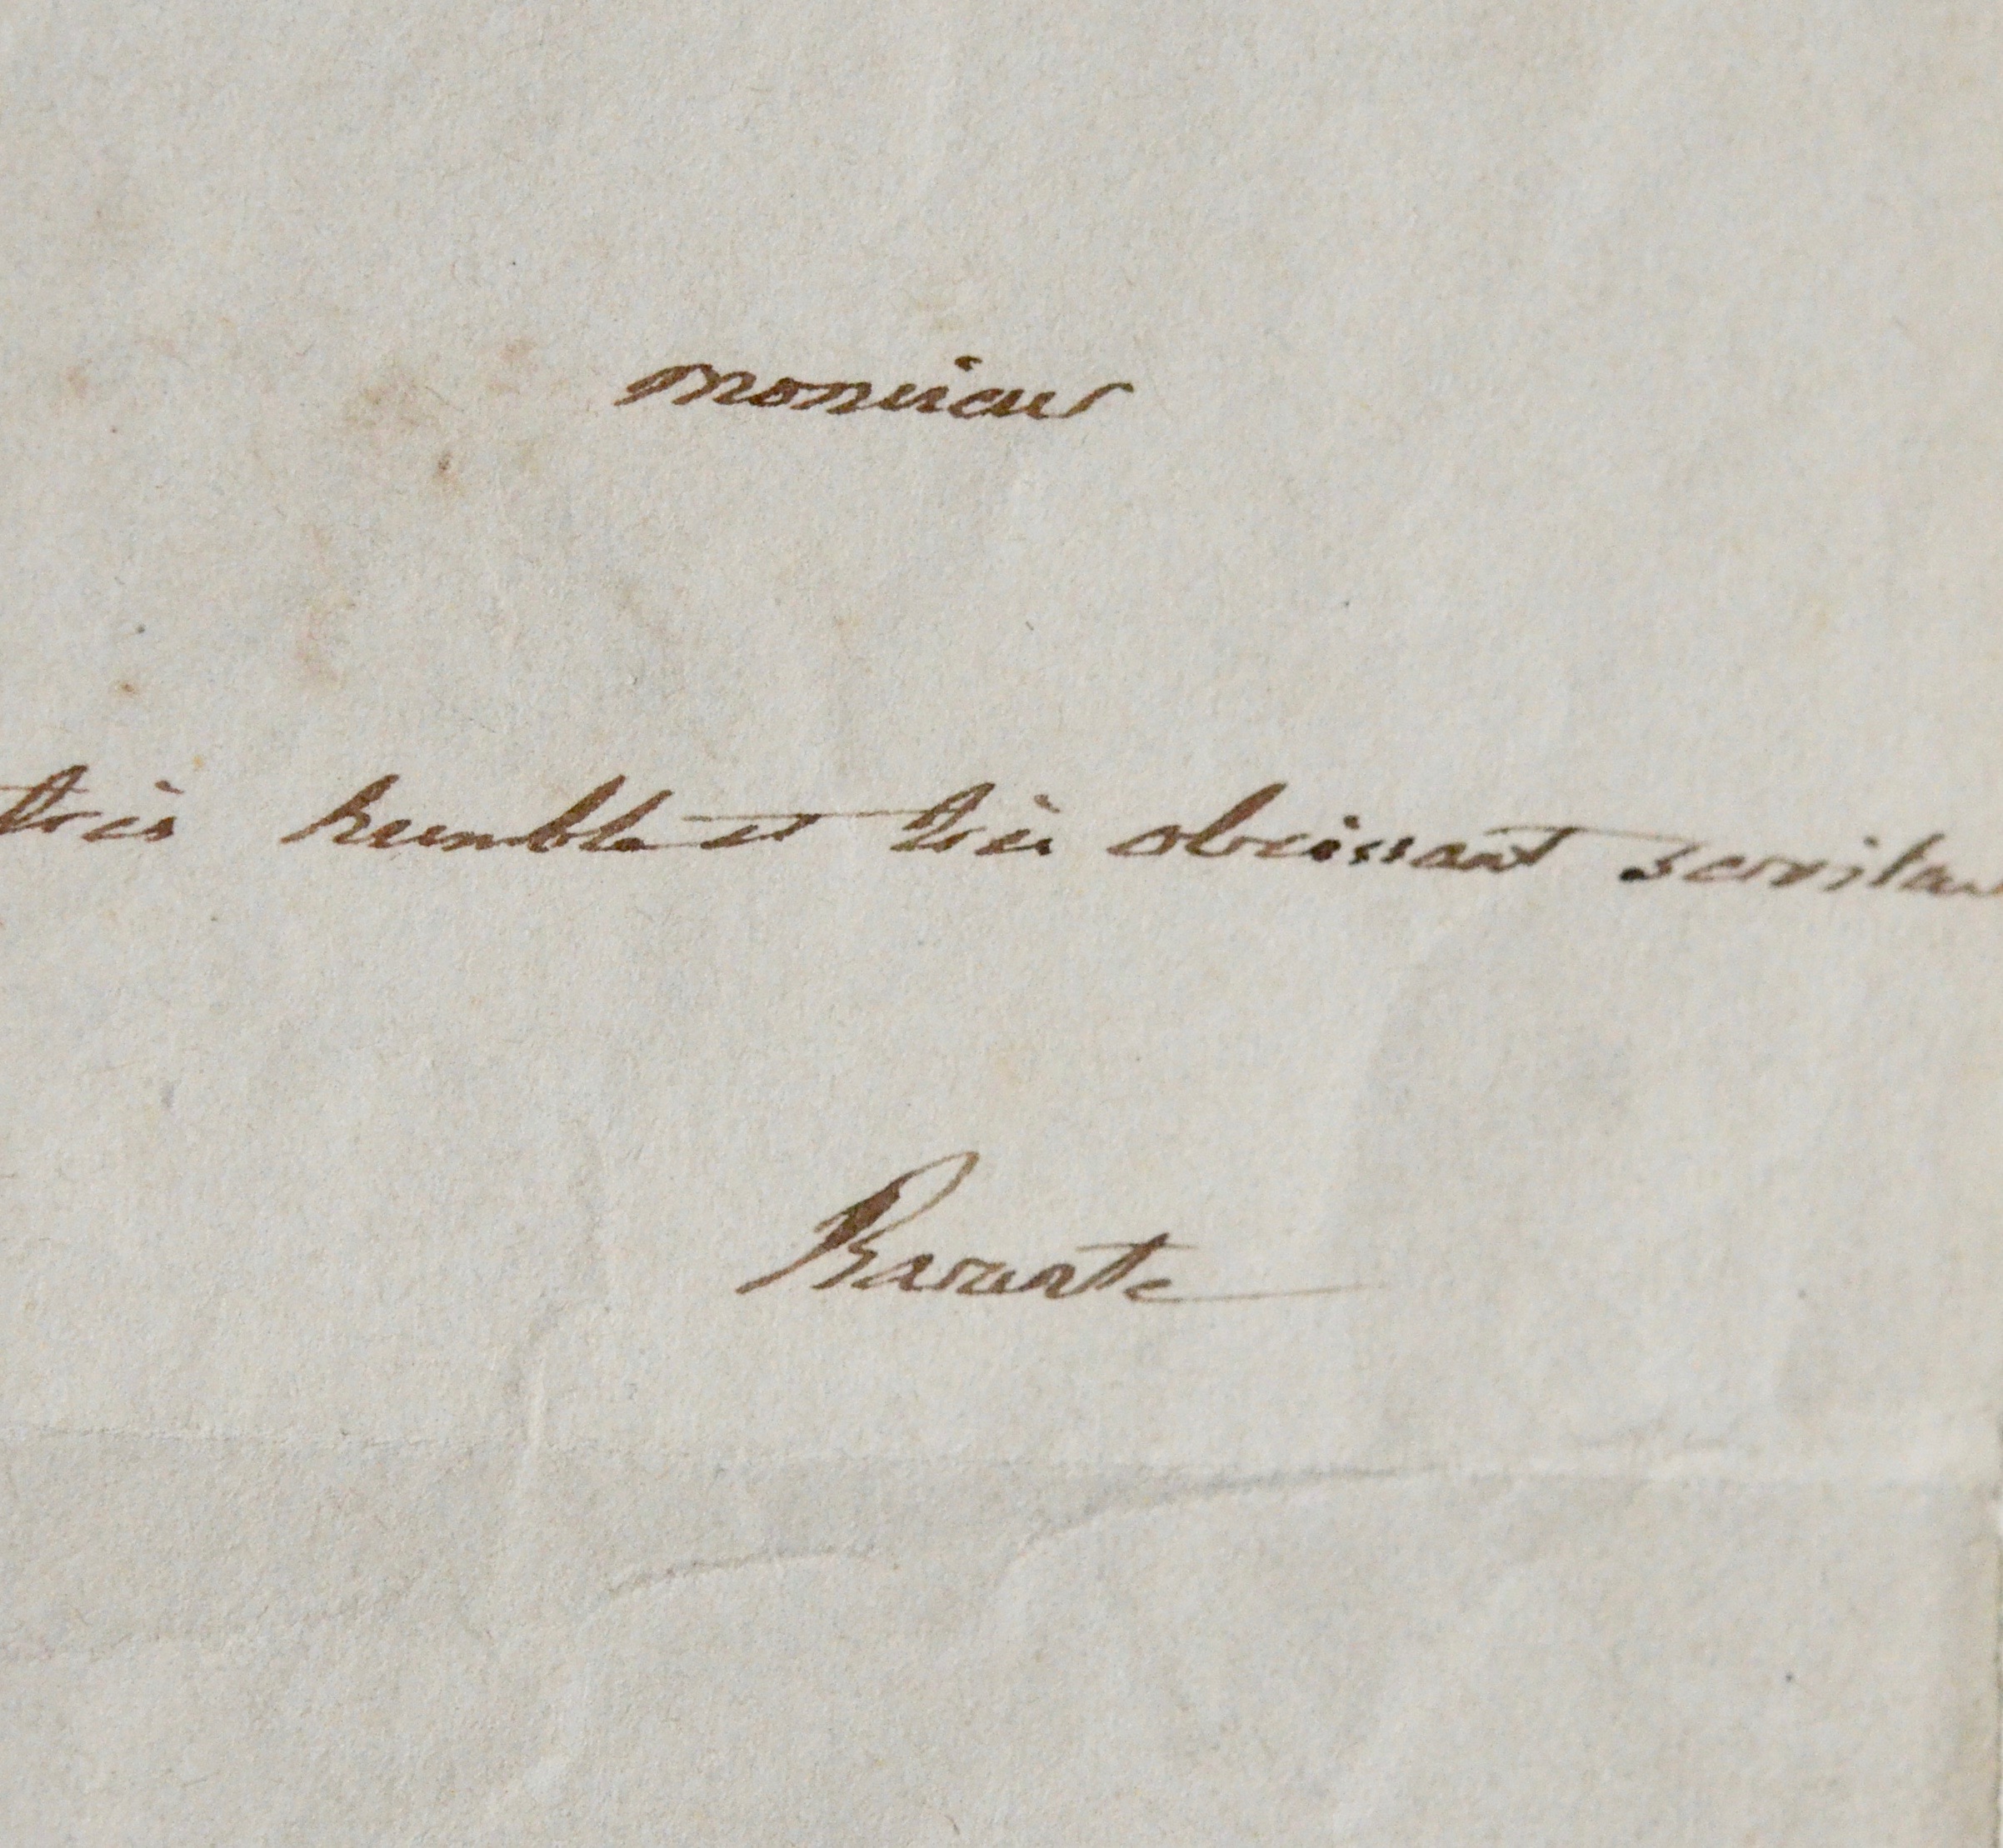 monsieur
très humble et très obeissant serviteur
Barante